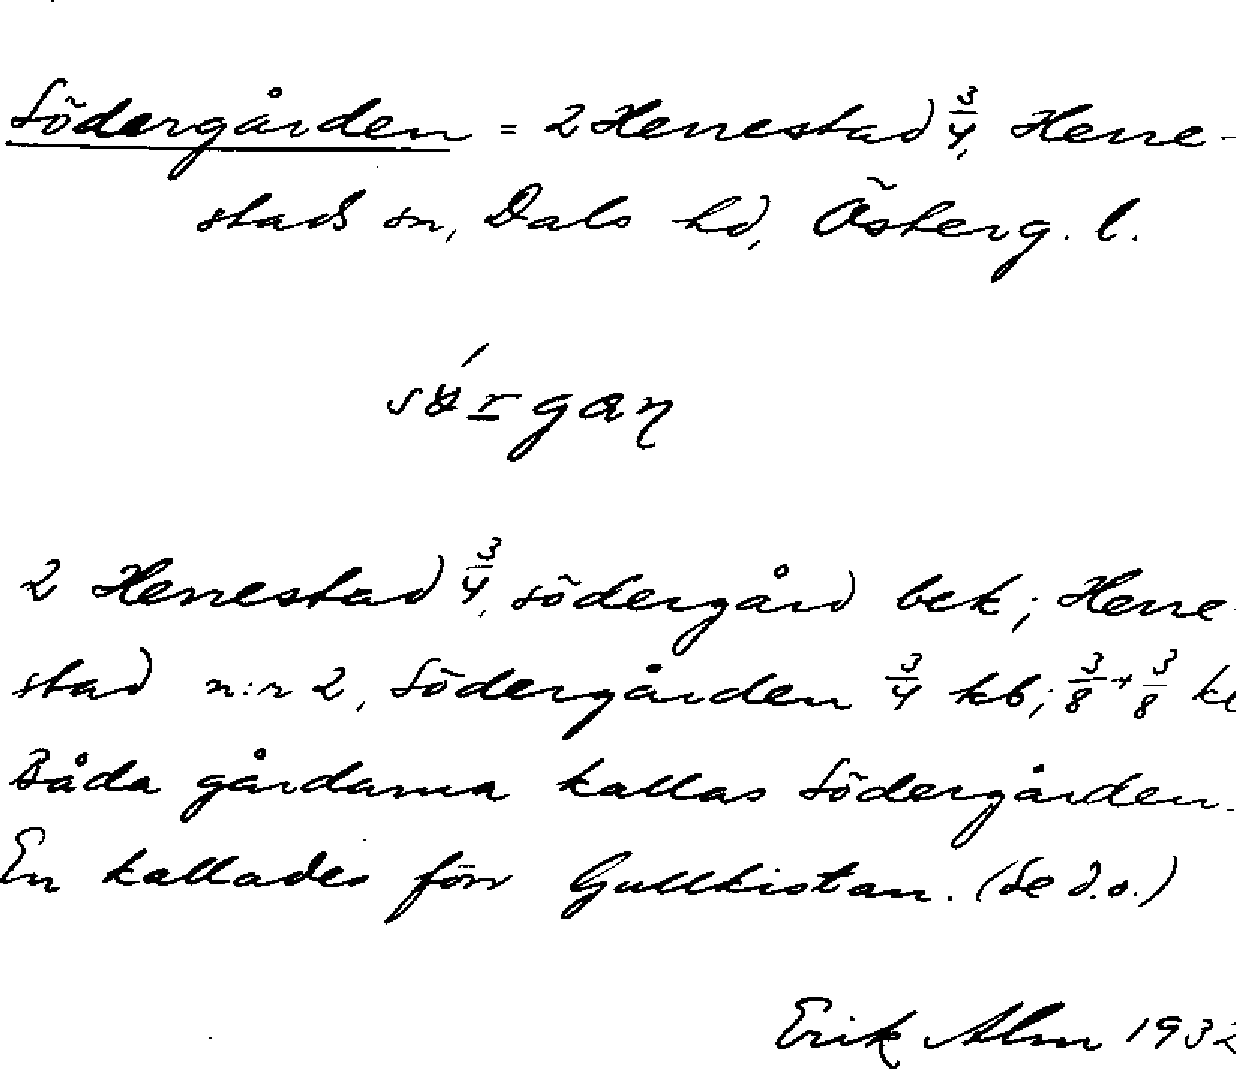 Södergården = 2 Herrestad 3/4, Herre-
stads sn, Dals hd, Österg. l.
2 Herrestad 3/4, södergård bek; Herre-
stad n:r 2, Södergården 3/4 kb; 3/8 + 3/8
Båda gårdarna kallas Södergården.
En kallades förr Gullkistan. (Se d.o.)
Erik Alm 1932